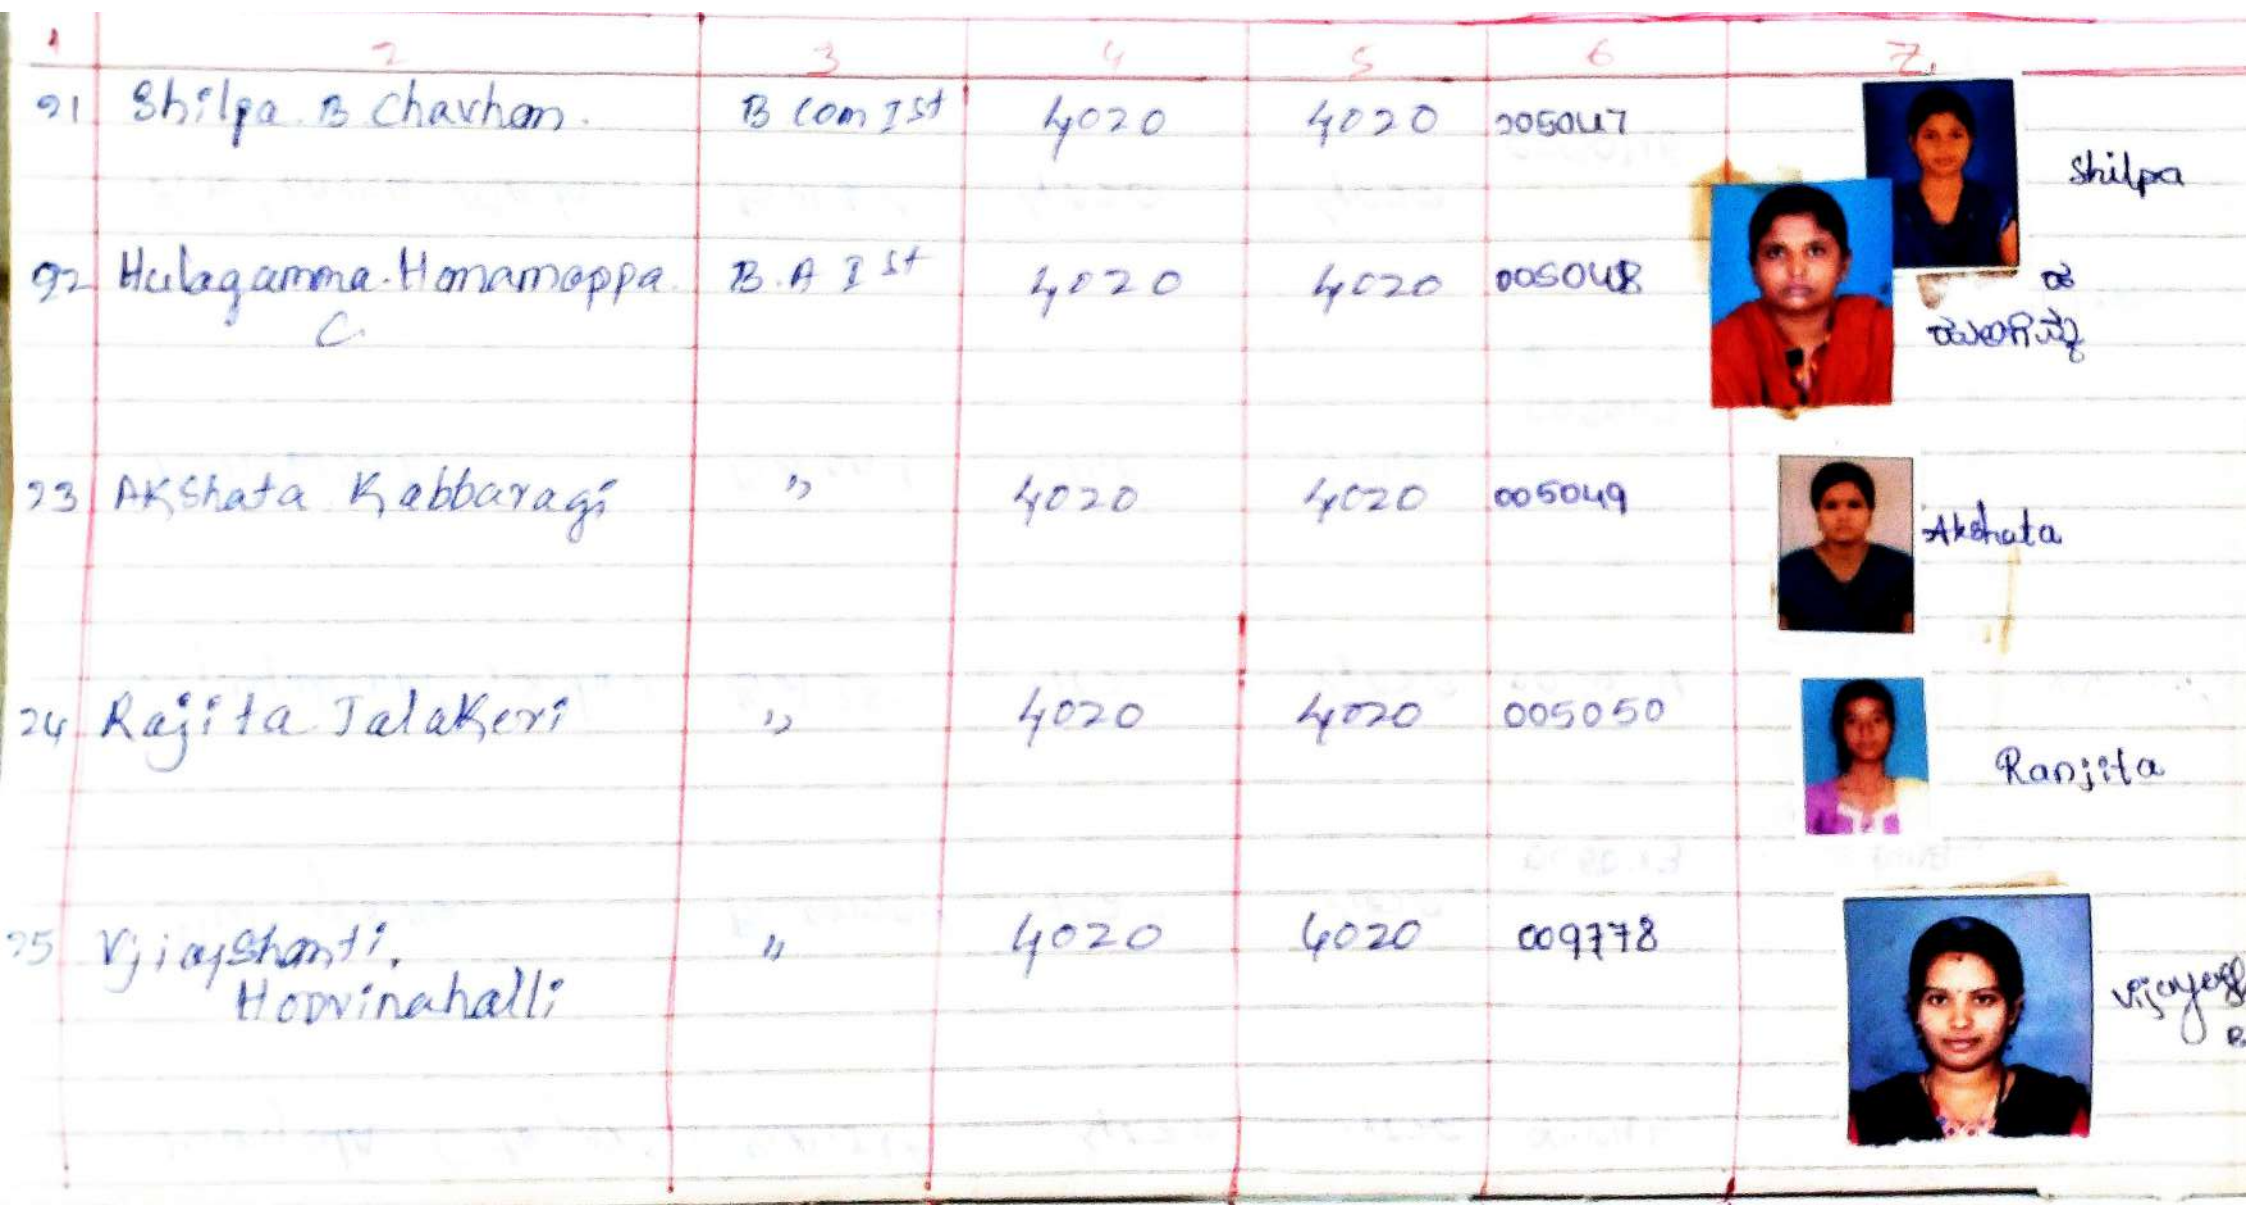 1 2 3 4 5 6 7.
91 Shilpa B Chavhan. B com Ist 4020 4020 005047 Shilpa
92 Hulagamma. Hanamappa B.A Ist 4020 4020 005048 ಹ
C. ಹುಲಿಗೆಮ್ಮ
93 Akshata Kabbaragi " 4020 4020 005049 Akshata
94 Rajita Talakeri " 4020 4020 005050
Ranjita
95 Vjiayshanti. " 4020 4020 009778
Hoovinahalli